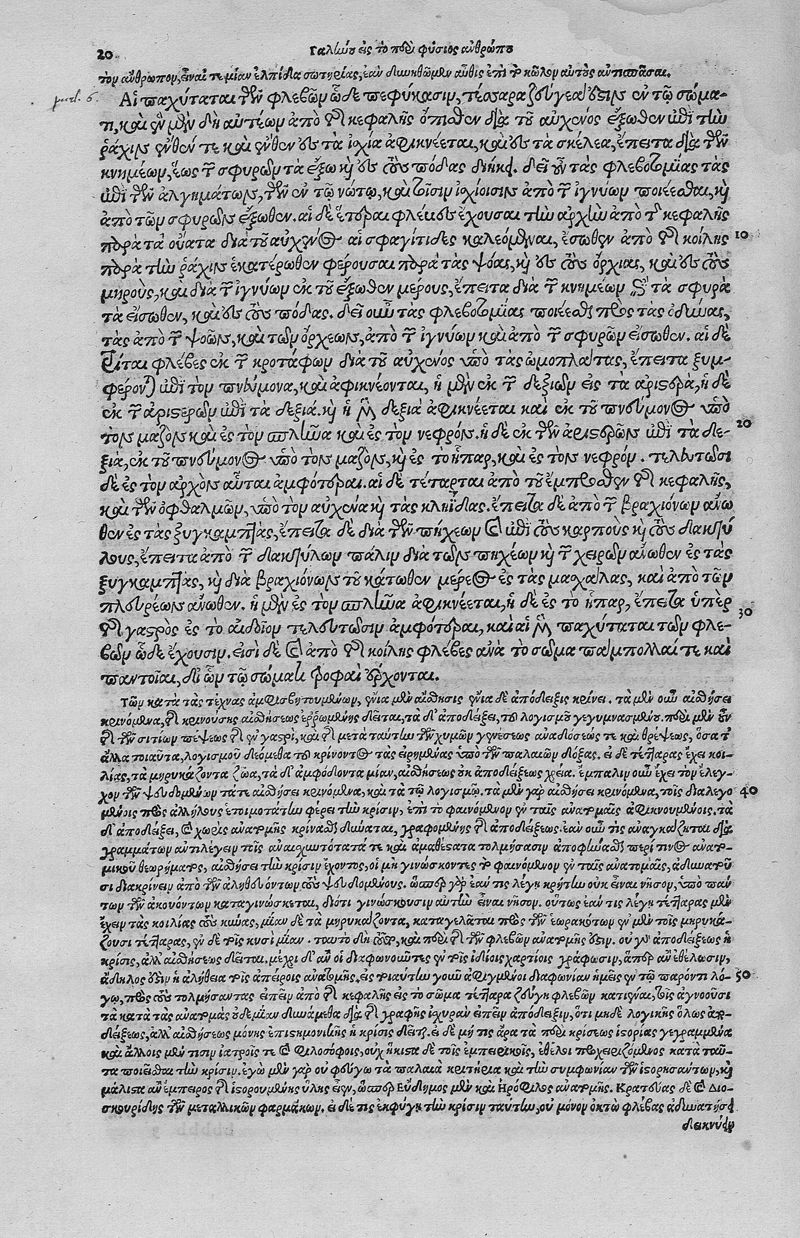 20 Γαληνοῦ εἰς τὸ περὶ φύσιος ἀνθρώπου
τον ἄνθρωπον, εἶναί τε μίαν ἐλπίδα σωτηρίας, ἐὰν δυνηθῶμεν αὖθις ἐπὶ τὸ κῶλον αὐτὸς ἀντισπᾶσαι.
Αἱ παχύταται τῶν φλεβῶν ὧδε πεφύκασιν, τέσσαρα ζεύγεα ἐστὶν ἐν τῷ σώμα-
τι, καὶ ἓν μὲν δὴ αὐτέων ἀπὸ τῆς κεφαλῆς ὄπιθεν διὰ τοῦ αὐχένος ἔξωθεν ἐπὶ τὴν
ῥάχιν ἔνθεν τε καὶ ἔνθεν ἐς τὰ ἰσχία ἀφικνέεται, καὶ ἐς τὰ σκέλεα, ἔπειτα διὰ τῶν
κνημέων, ἕως τῶν σφυρῶν τὰ ἔξω καὶ ἐς τοὺς πόδας διήκει. δεῖ οὖν τὰς φλεβοτομίας τὰς
ἐπὶ τῶν ἀλγημάτων, τῶν ἐν τῷ νώτῳ, καὶ τοῖσιν ἰσχίοισιν ἀπὸ τῶν ἰγνύων ποιέεσθαι, καὶ
ἀπὸ τῶν σφυρῶν ἔξωθεν. αἱ δὲ ἕτεραι φλέβες ἔχουσαι τὴν ἀρχὴν ἀπὸ τῆς κεφαλῆς
παρὰ τὰ οὔατα διὰ τοῦ αὐχένος αἱ σφαγίτιδες καλεόμεναι, ἔσωθεν ἀπὸ τῆς κοίλης 10
παρὰ τὴν ῥάχιν ἑκατέρωθεν φέρουσαι παρὰ τὰς ψόας, καὶ ἐς τοὺς ὄρχιας, καὶ ἐς τοὺς
μηροὺς, καὶ διὰ τῶν ἰγνύων ἐκ τοῦ ἔξωθεν μέρους, ἔπειτα διὰ τῶν κνημέων ἐπὶ τὰ σφυρὰ
τὰ εἴσωθεν, καὶ ἐς τοὺς πόδας. δεῖ οὖν τὰς φλεβοτομίας ποιέεσθαι πρὸς τὰς ὀδύνας,
τὰς ἀπὸ τῶν ψοῶν, καὶ τῶν ὄρχεων, ἀπὸ τῶν ἰγνύων καὶ ἀπὸ τῶν σφυρῶν εἴσωθεν. αἱ δὲ
τρίται φλέβες ἐκ τῶν κροτάφων διὰ τοῦ αὐχένος ὑπὸ τὰς ὠμοπλάτας, ἔπειτα ξυμ-
φέρονται ἐπὶ τὸν πνεύμονα, καὶ ἀφικνέονται, ἡ μὲν ἐκ τῶν δεξιῶν εἰς τὰ ἀριστερὰ, ἡ δὲ
ἐκ τῶν ἀριστερῶν ἐπὶ τὰ δεξιά. καὶ ἡ μὲν δεξιὰ ἀφικνέεται καὶ ἐκ τοῦ πνεύμονος ὑπὸ
τὸν μαζὸν καὶ ἐς τὸν σπλῆνα καὶ ἐς τὸν νεφρόν. ἡ δὲ ἐκ τῶν ἀριστερῶν ἐπὶ τὰ δε- 20
ξιὰ, ἐκ τοῦ πνεύμονος ὑπὸ τὸν μαζὸν, καὶ ἐς τὸ ἧπαρ, καὶ ἐς τὸν νεφρόν. τελευτῶσι
δὲ ἐς τὸν ἀρχὸν αὗται ἀμφότεραι. αἱ δὲ τέταρται ἀπὸ τοῦ ἔμπροσθεν τῆς κεφαλῆς,
καὶ τῶν ὀφθαλμῶν, ὑπὸ τὸν αὐχένα καὶ τὰς κληῗδας. ἔπειτα δὲ ἀπὸ τῶν βραχιόνων ἄνω
θεν ἐς τὰς ξυγκαμπὰς, ἔπειτα δὲ διὰ τῶν πήχεων καὶ ἐπὶ τοὺς καρποὺς καὶ τοὺς δακτύ
λους, ἔπειτα ἀπὸ τῶν δακτύλων πάλιν διὰ τῶν πηχέων καὶ τῶν χειρῶν ἄνωθεν ἐς τὰς
ξυγκαμπὰς, καὶ διὰ βραχιόνων τοῦ κάτωθεν μέρεος ἐς τὰς μασχάλας, καὶ ἀπὸ τῶν
πλευρέων ἄνωθεν. ἡ μὲν ἐς τὸν σπλῆνα ἀφικνέεται, ἡ δὲ ἐς τὸ ἧπαρ, ἔπειτα ὑπὲρ
τῆς γαστρὸς ἐς τὸ αἰδοῖον τελευτῶσιν ἀμφότεραι, καὶ αἱ μὲν παχύταται τῶν φλε- 30
βῶν ὧδε ἔχουσιν. εἰσὶ δὲ καὶ ἀπὸ τῆς κοίλης φλέβες ἀνὰ τὸ σῶμα πάμπολλαί τε καὶ
παντοῖαι, δι’ ὧν τῷ σώματι τροφαὶ ἔρχονται.
Τῶν κατὰ τὰς τέχνας ἀμφισβητουμένων, ἔνια μὲν αἴσθησις ἔνια δὲ ἀπόδειξις κρίνει. τὰ μὲν οὖν αἰσθήσει
κρινόμενα, τῆς κρινούσης αἰσθήσεως ἐρρωμένης δεῖται, τὰ δ’ ἀποδείξει, τοῦ λογισμοῦ γεγυμνασμένου. περὶ μὲν οὖν
τῆς τῶν σιτίων πέψεως τῆς ἐν γαστρὶ, καὶ τῆς μετὰ ταύτην χυμῶν γενέσεως ἀναδόσεώς τε καὶ θρέψεως, ὅσα τ’
ἄλλα τοιαῦτα, λογισμοῦ δεόμεθα τοῦ κρίνοντος τὰς εἰρημένας ὑπὸ τῶν παλαιῶν δόξας. εἰ δὲ τέτταρας ἔχει κοι-
λίας, τὰ μηρυκάζοντα ζῶα, τὰ δ’ ἀμφόδοντα μίαν, αἰσθήσεως οὐκ ἀποδείξεως χρεία. ἔμπαλιν οὖν ἔχει τὸν ἔλεγ-
χον τῶν ψευδομένων τά τε αἰσθήσει κρινόμενα, καὶ τὰ τῷ λογισμῷ. τὰ μὲν γὰρ αἰσθήσει κρινόμενα, τοῖς διαλεγο 40
μένοις πρὸς ἀλλήλους ἑτοιμοτάτην φέρει τὴν κρίσιν, ἐπὶ τὸ φαινόμενον ἐν ταῖς ἀνατομαῖς ἀφικνουμένοις. τὰ
δ’ ἀποδείξει, καὶ χωρὶς ἀνατομῆς κριθῆναι δύναται, γραφομένης τῆς ἀποδείξεως. ἐὰν οὖν τις ἀναγκάζηται διὰ
γραμμάτων ἀντιλέγειν τοῖς ἀναισχυντότατά τε καὶ ἀμαθέστατα τολμήσασιν ἀποφήνασθαι περί τινος ἀνατο-
μικοῦ θεωρήματος, αἰσθήσει τὴν κρίσιν ἔχοντος, οἱ μὴ γινώσκοντες τὸ φαινόμενον ἐν ταῖς ἀνατομαῖς, ἀδυνατοῦ
σι διακρίνειν ἀπὸ τῶν ἀληθευόντων τοὺς ψευδομένους. ὥσπερ γὰρ ἐάν τις λέγῃ κρήτην οὐκ εἶναι νῆσον, ὑπὸ πάν
των τῶν ἀκουόντων καταγινώσκεται, διότι γινώσκουσιν αὐτὴν εἶναι νῆσον. οὕτως ἐάν τις λέγῃ τέτταρας μὲν
ἔχειν τὰς κοιλίας τοὺς κύνας, μίαν δὲ τὰ μηρυκάζοντα, καταγελᾶται πρὸς τῶν ἑωρακότων ἐν μὲν τοῖς μηρυκά-
ζουσι τέτταρας, ἐν δὲ τοῖς κυσὶ μίαν. ταυτὸ δὴ τοῦτο, καὶ περὶ τῆς τῶν φλεβῶν ἀνατομῆς ἐστιν. οὐ γὰρ ἀποδείξεως ἡ
κρίσις, ἀλλ’ αἰσθήσεως δεῖται. μέχρι δ’ ἂν οἱ διαφωνοῦντες ἐν τοῖς ἰδίοις χαρτίοις γράφωσιν, ἅπερ ἂν ἐθέλωσιν,
ἄδηλός ἐστιν ἡ ἀλήθεια τοῖς ἀπείροις ἀνατομῆς. εἰς τοιαύτην γοῦν ἀφιγμένοι διαφωνίαν ἡμεῖς ἐν τῷ παρόντι λό- 50
γῳ, πρὸς τοὺς τολμήσαντας εἰπεῖν ἀπὸ τῆς κεφαλῆς εἰς τὸ σῶμα τέτταρα ζεύγη φλεβῶν κατιέναι, τοῖς ἀγνοοῦσι
τὰ κατὰ τὰς ἀνατομὰς οὐδεμίαν δυνάμεθα διὰ τῆς γραφῆς ἰσχυρὰν εἰπεῖν ἀπόδειξιν, ὅτι μηδὲ λογικῆς ὅλως ἀπο-
δείξεως, ἀλλ’ αἰσθήσεως μόνης ἐπιστημονικῆς ἡ κρίσις δεῖται. εἰ δὲ μή τις ἄρα τὰ περὶ κρίσεως ἱστορίας γεγραμμένα
καὶ ἄλλοις μέν τισιν ἰατροῖς τε καὶ φιλοσόφοις, οὐχ ἥκιστα δὲ τοῖς ἐμπειρικοῖς, ἐθέλοι προχειριζόμενος κατὰ ταῦ-
τα ποιεῖσθαι τὴν κρίσιν. ἐγὼ μὲν γὰρ οὐ φεύγω τὰ παλαιὰ κριτήρια καὶ τὴν συμφωνίαν τῶν ἱστορησάντων, καὶ
μάλιστα ἂν ἔμπειρος τῆς ἱστορουμένης ὕλης εἴην, ὥσπερ Εὔδημος μὲν καὶ Ἡρόφιλος ἀνατομῆς. Κρατεύας δὲ καὶ Διο-
σκουρίδης τῶν μεταλλικῶν φαρμάκων. εἰ δέ τις ἐκφύγῃ τὴν κρίσιν ταύτην, οὐ μόνον ὀκτὼ φλέβας ἀδυνατήσει
δεικνύειν